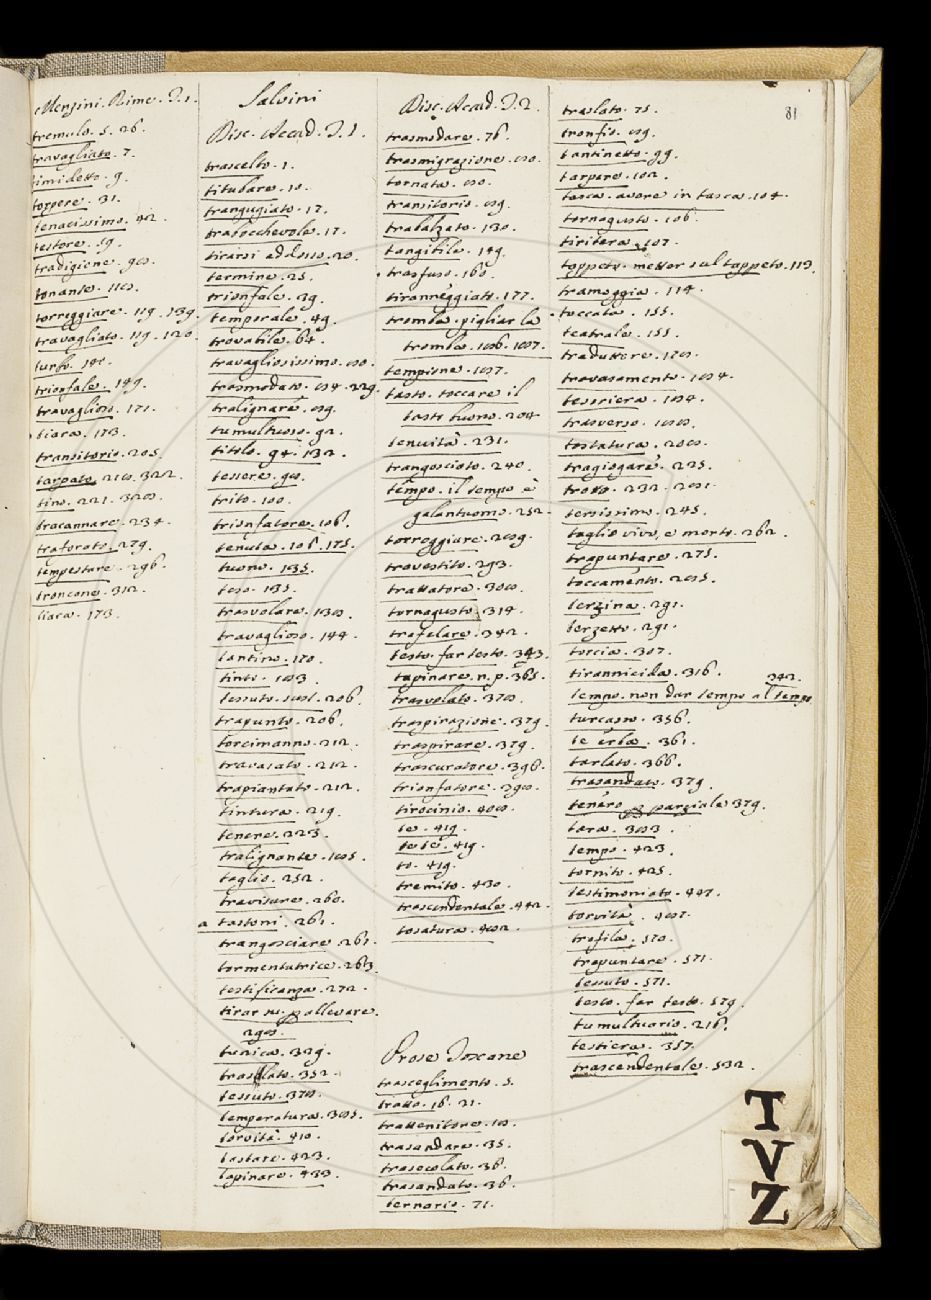 Menzini. Rime. T. 1.
tremulo. 5. 26.
travagliato. 7.
timidetto. 9.
torpere. 31.
tenacissimo. 42.
testore. 59.
tradigione.
tonante.
torreggiare. 119. 139.
travagliato. 119. 120.
turbo.
trionfale. 149.
travaglioso. 171.
tiara. 173.
transitorio. 205.
tarpato. 322.
tino. 221.
tracannare. 234.
traforato. 279.
tempestare. 296.
troncone. 312.
tiara. 173.
Salvini
Disc. Accad. T. 1.
trascelto. 1.
titubare. 10.
trangugiato. 17.
trabocchevole. 17.
tirarsi addosso. 20.
termine. 25.
trionfale. 39.
temporale. 49.
trovabile. 64.
travagliosissimo.
trasmodato.
tralignare.
tumultuoso. 92.
titolo. 94. 132.
tessere.
trito. 100.
trionfatore. 106.
tenuta. 106. 175.
tuono. 135.
teso. 135.
trasvolare.
travaglioso. 144.
tantino. 170.
tinto.
tessuto. sust. 206.
trapunto. 206.
torcimanno. 212.
travasato. 212.
trapiantato. 212.
tintura. 219.
tenere. 223.
tralignante.
taglio. 252.
travisare. 260.
a tastoni. 261.
trangosciare. 261.
tormentatrice. 263.
testificanza. 272.
tirar su. p allevare.
tunica. 329.
traslato. 352.
tessuto.
temperatura.
torvità. 410.
tastare. 423.
tapinare. 433.
Disc. Accad. T. 2.
trasmodare. 76.
trasmigrazione.
tornata.
transitorio.
trabalzato. 130.
tangibile. 149.
trasfuso. 160.
tiranneggiato. 177.
tromba. pigliar la
tromba.
tempione.
tasto. toccare il
tasto buono. 204.
tenuità. 231.
trangosciato. 240.
tempo. il tempo è
galantuomo. 252.
torreggiare.
travestito. 293.
trattatore.
tornagusto. 314.
trafelare. 342.
testo. far testo. 343.
tapinare. n. p. 365.
trasvolato.
traspirazione. 379.
traspirare. 379.
trascuratore. 396.
trionfatore.
tirocinio.
te. 419.
te te. 419.
to. 419.
tremito. 430.
trascendentale. 442.
tosatura.
Prose Toscane
trasceglimento. 5.
tratto. 16. 21.
trattenitore. 10.
trasandare. 35.
trasecolato. 36.
trasandato. 36.
ternario. 71.
81
traslato. 75.
tronfio.
tantinetto. 99.
tarpare. 102.
tasca. avere in tasca. 104.
tornagusto. 106.
tiritera. 107.
toppeto. metter sul tappeto. 113.
tramoggia. 114.
toccata. 155.
teatrale. 155.
traduttore.
travasamento.
tessiera.
trasverso.
tostatura.
tragiogare. 225.
trotto. 232.
tersissimo. 245.
taglio vivo, e morto. 262.
trapuntare. 275.
toccamento.
terzina. 291.
terzetto. 291.
torcia. 307.
tirannicida. 316.
342.
tempo. non dar tempo al tempo
turcasso. 356.
te erba. 361.
tarlato. 366.
trasandato. 379.
tenero p parziale 379.
tara.
tempo. 423.
tornito. 425.
testimoniato. 447.
torvità.
trafila. 570.
trapuntare. 571.
tessuto. 571.
testo. far testo. 579.
tumultuario. 216.
testiera. 357.
trascendentale. 532.
T
V
Z